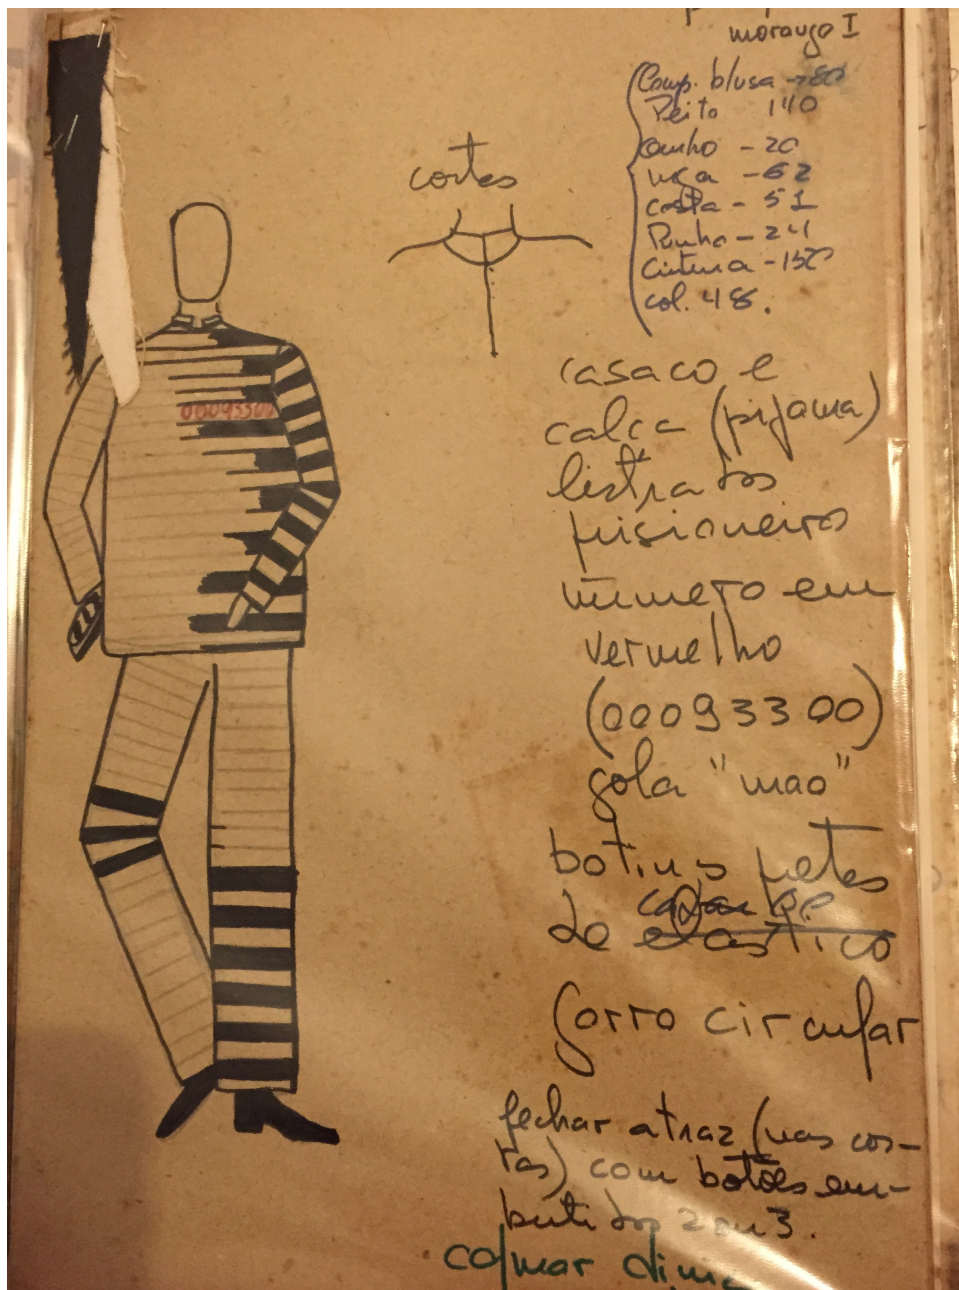 morango I
Comp. blusa - 80
Peito 110
ombro - 20
costa - 51
Punho - 24
Cintura - 120
col. 48.
cortes
00093300
casaco e
calça (pijama)
listrados
prisioneiro
número em
vermelho
(00093300)
gola "mao"
botins pretos
de elastico
Gorro circular
fechar atraz (nas cos-
tas) com botões em-
butidos 2 ou 3.
colmar